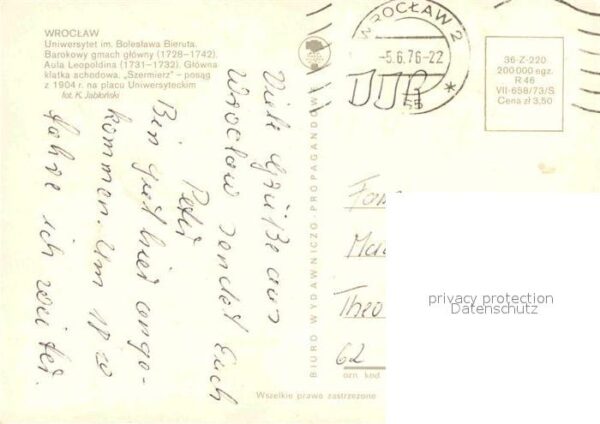 WROCŁAW
Uniwersytet im. Bolesława Bieruta.
Barokowy gmach główny (1728-1742).
Aula Leopoldina (1731-1732). Główna
klatka schodowa. „Szermierz" - posąg
z 1904 r. na placu Uniwersyteckim
fot. K. Jabłoński
Viele Grüße aus
Wrocław sendet Euch
Peter
Bin gut hier ange-
kommen. Um 18 20
fahre ich weiter.
BIURO WYDAWNICZO-PROPAGANDOWE
WROCŁAW 2
-5.6.76-22
DDR
36-Z-220
200 000 egz.
R 46
VII-658/73/S
Cena zł 3,50
Fam
Theo
62
ozn. kod
Wszelkie prawa zastrzeżone
privacy protection
Datenschutz